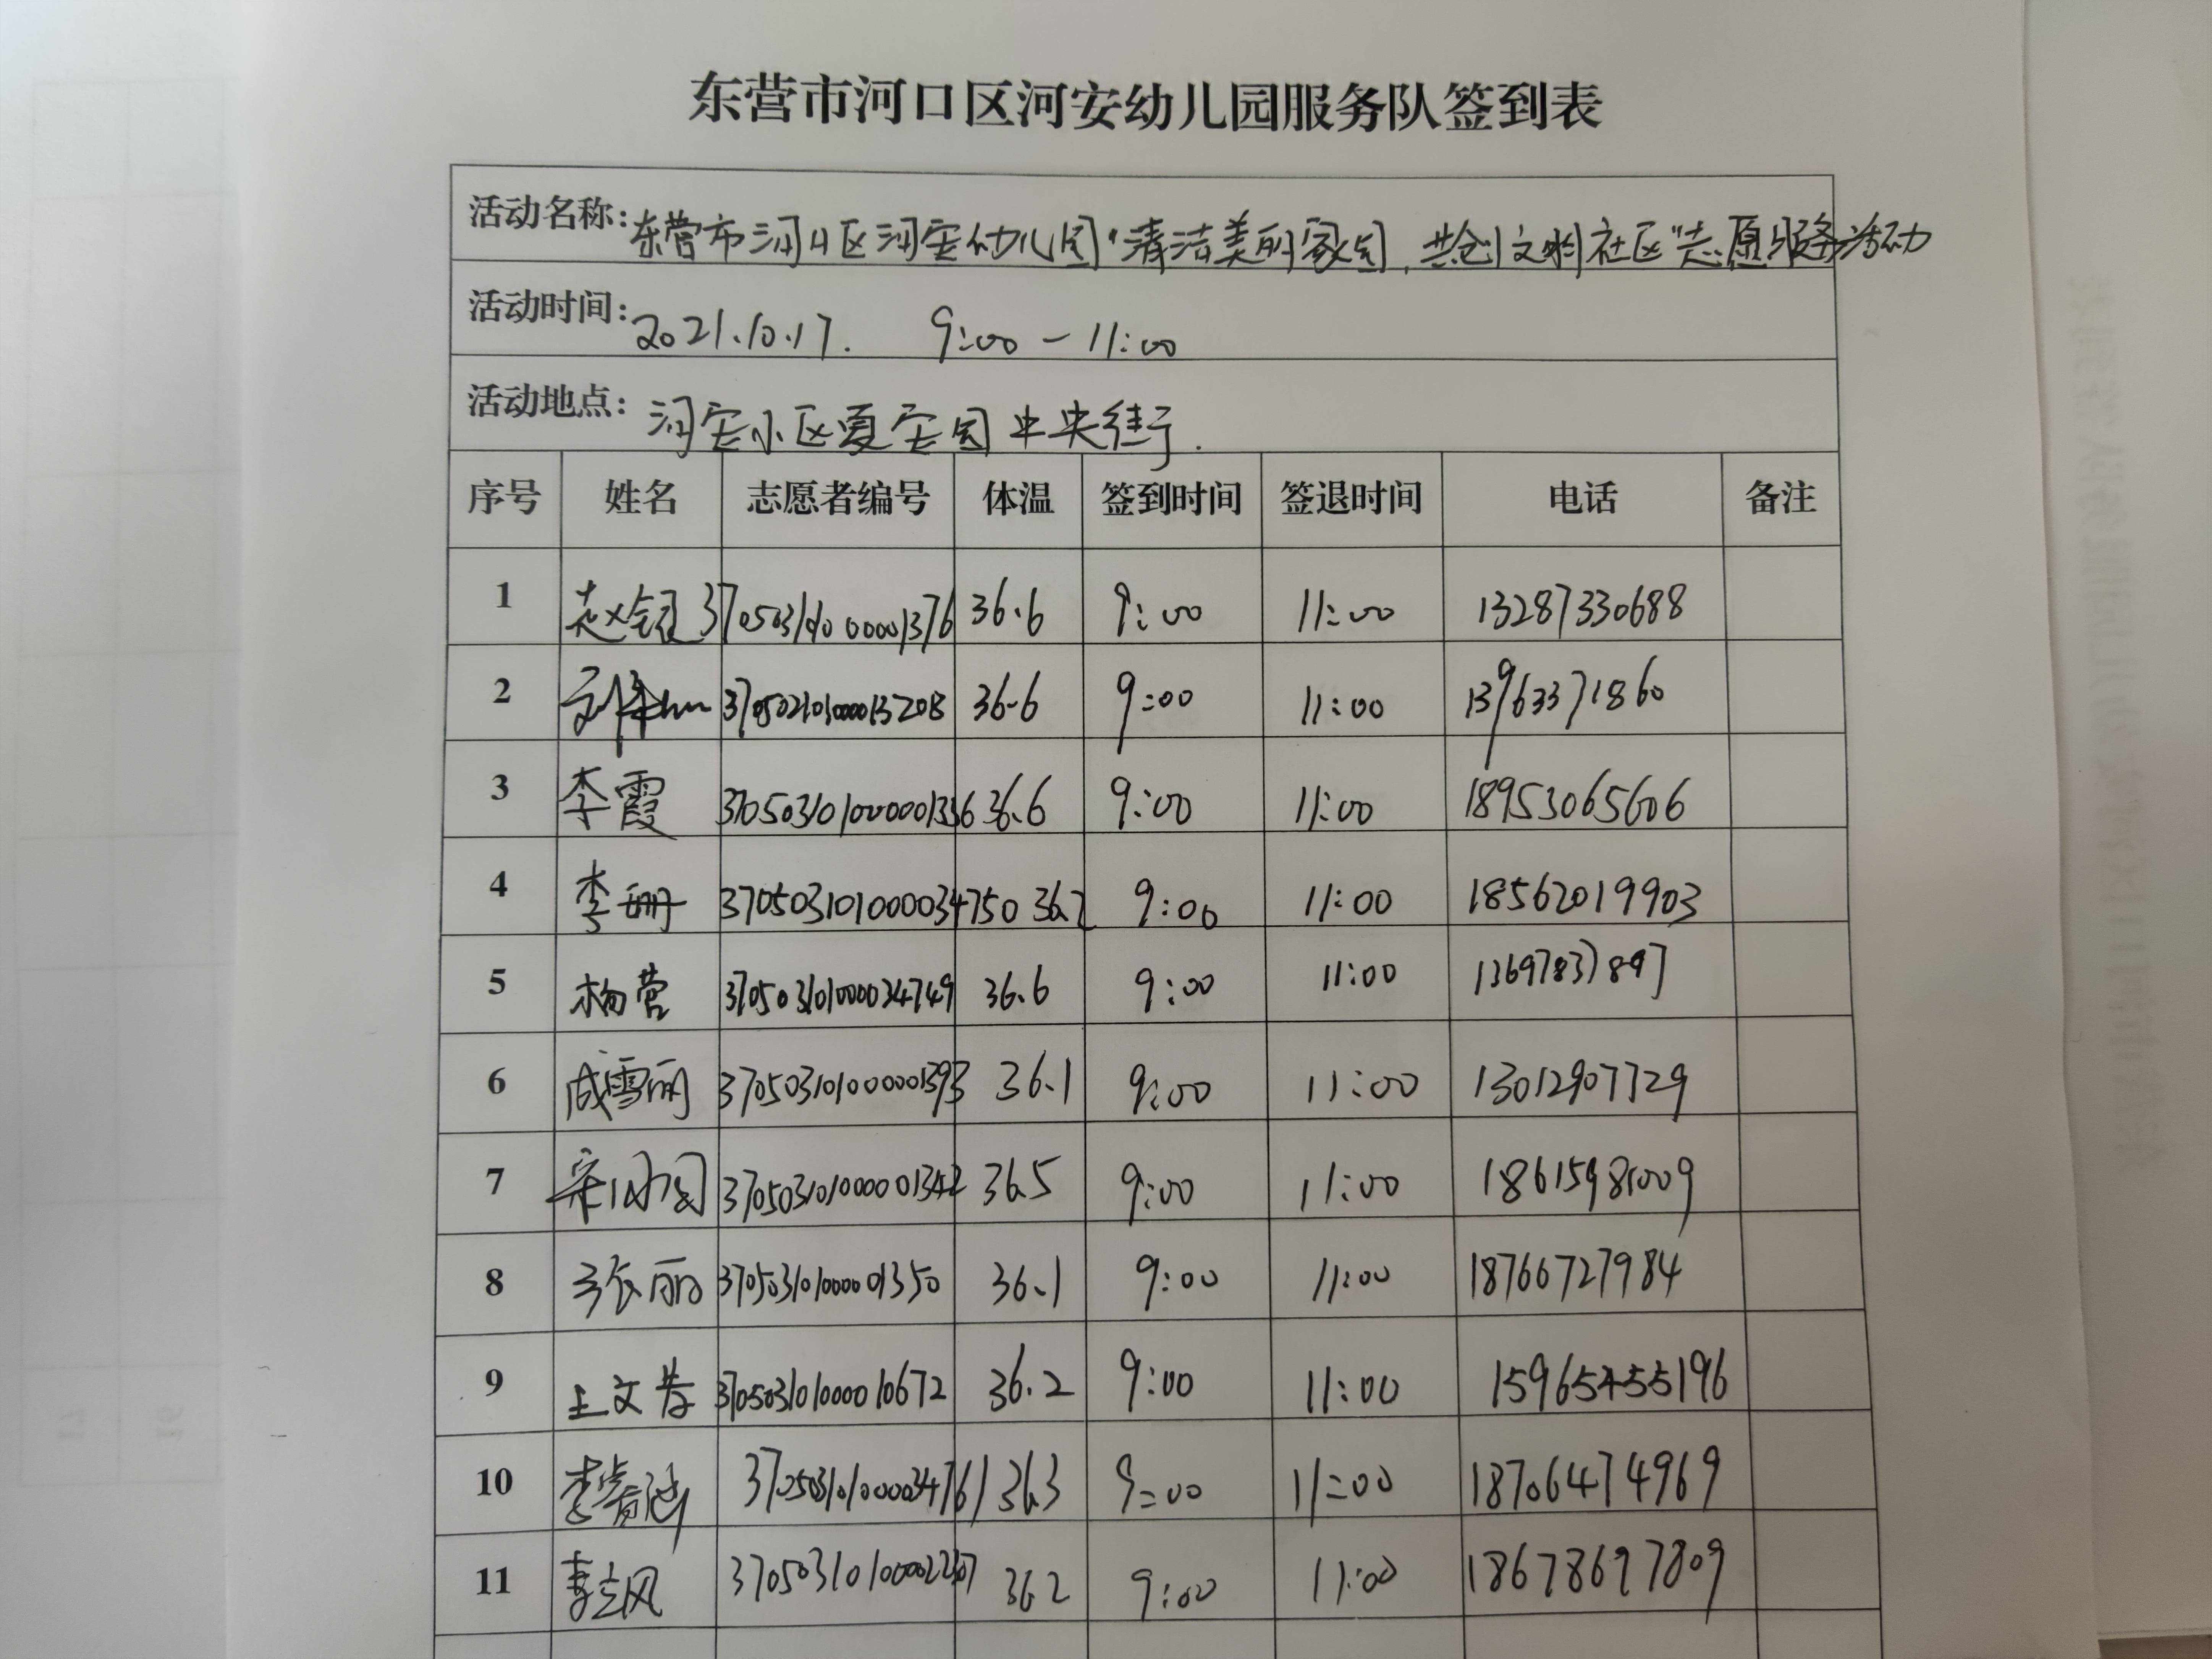 东营市河口区河安幼儿园服务队签到表
活动名称:东营市河口区河安幼儿园“清洁美丽家园,共创文明社区”志愿服务活动
活动时间:2021.10.17. 9:00-11:00
活动地点:河安小区夏安园中央街.
序号 姓名 志愿者编号 体温 签到时间 签退时间 电话 备注
1 36.6 9:00 11:00 13287330688
2 36.6 9:00 11:00 13963371860
3 李霞 36.6 9:00 11:00 18953065606
4 李珊 370503101000034750 36.2 9:00 11:00 18562019903
5 杨营 370503101000034749 36.6 9:00 11:00 13697837897
6 成雪丽 370503101000001393 36.1 9:00 11:00 13012907729
7 370503101000001342 36.5 9:00 11:00 18615981009
8 张丽 370503101000001350 36.1 9:00 11:00 18766727984
9 王文芳 370503101000010672 36.2 9:00 11:00 15965455196
10 370503101000034761 36.3 9:00 11:00 18706474969
11 李立风 36.2 9:00 11:00 18678697809